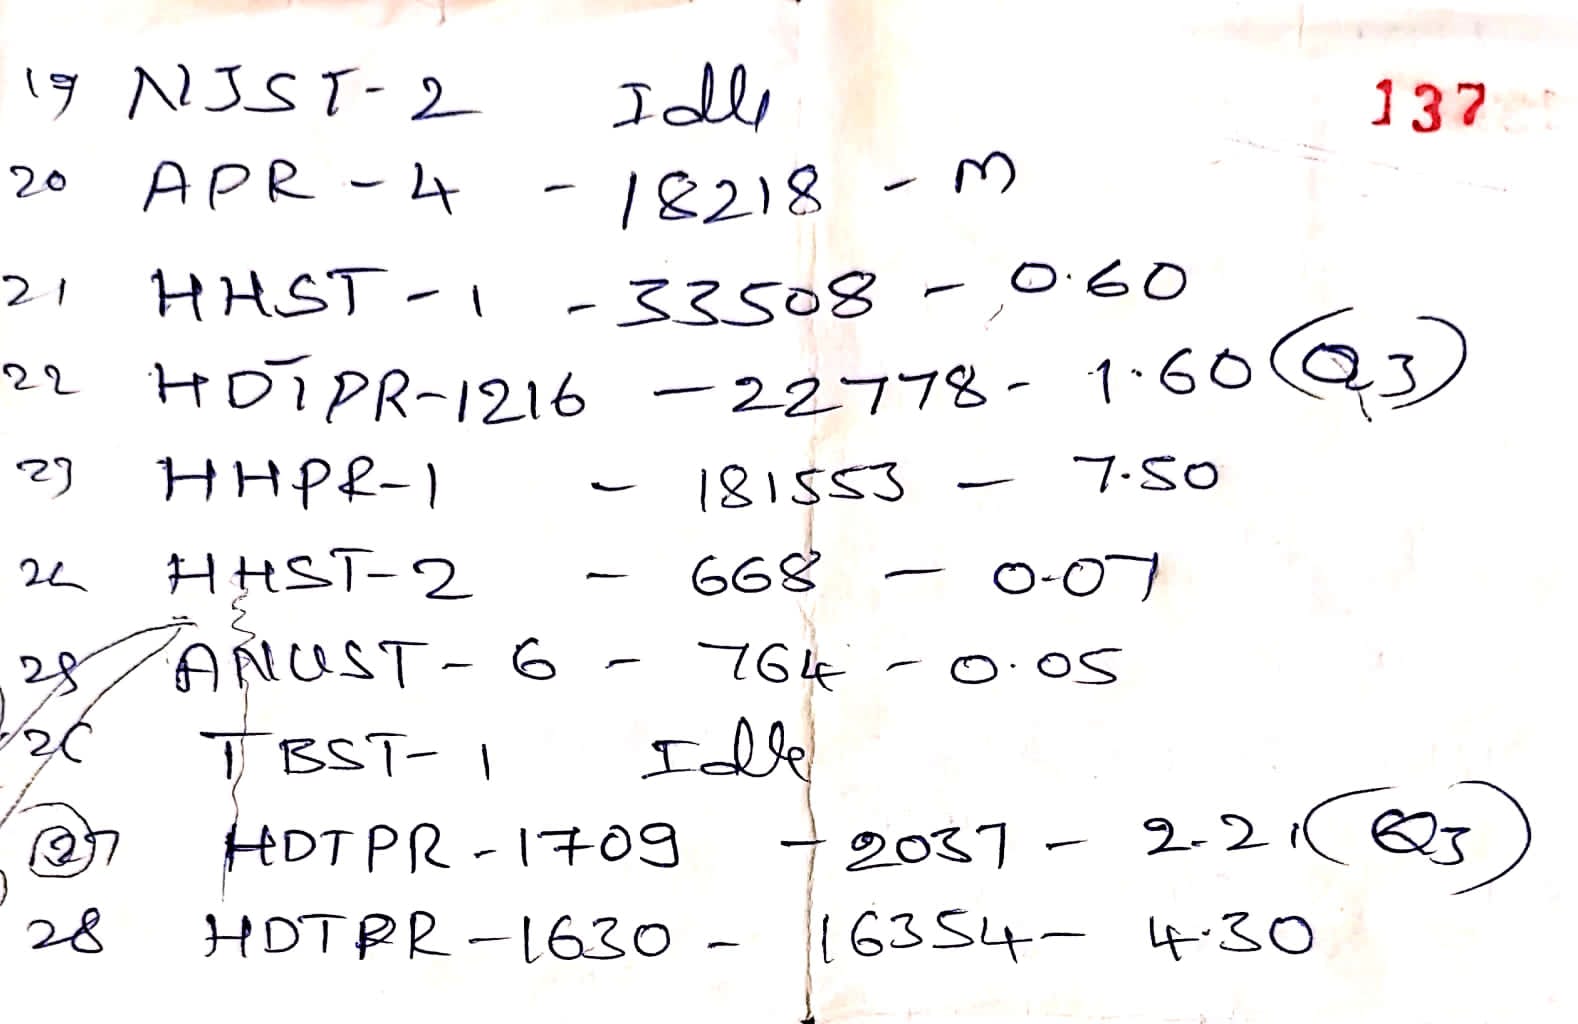 19 NJST-2 Idle 137
20 APR-4 - 18218 - m
21 HHST-1 - 33508 - 0.60
22 HDTPR-1216 - 22778 - 1.60 (Q3)
23 HHPR-1 - 181553 - 7.50
24 HHST-2 - 668 - 0.07
25 ANUST-6 - 764 - 0.05
26 TBST-1 Idle
27 HDTPR-1709 - 2037 - 2.21 (Q3)
28 HDTPR-1630 - 16354 - 4.30